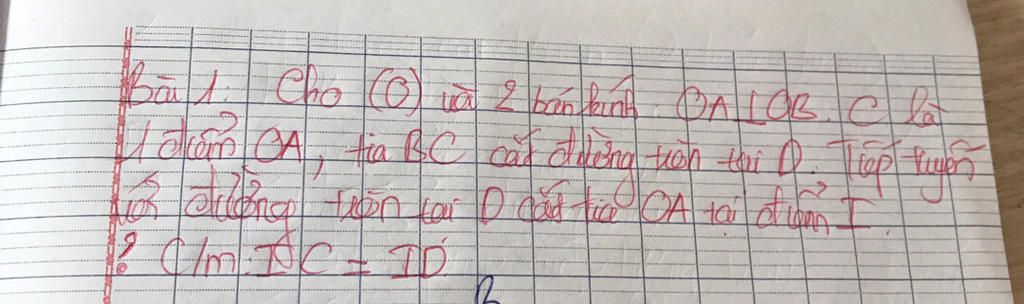 Bài 1: Cho (O) và 2 bán kính OA⊥OB. C là
1 điểm OA, tia BC cắt đường tròn tại D. Tiếp tuyến
với đường tròn tại D cắt tia OA tại điểm I.
? C/m: IC = ID
B